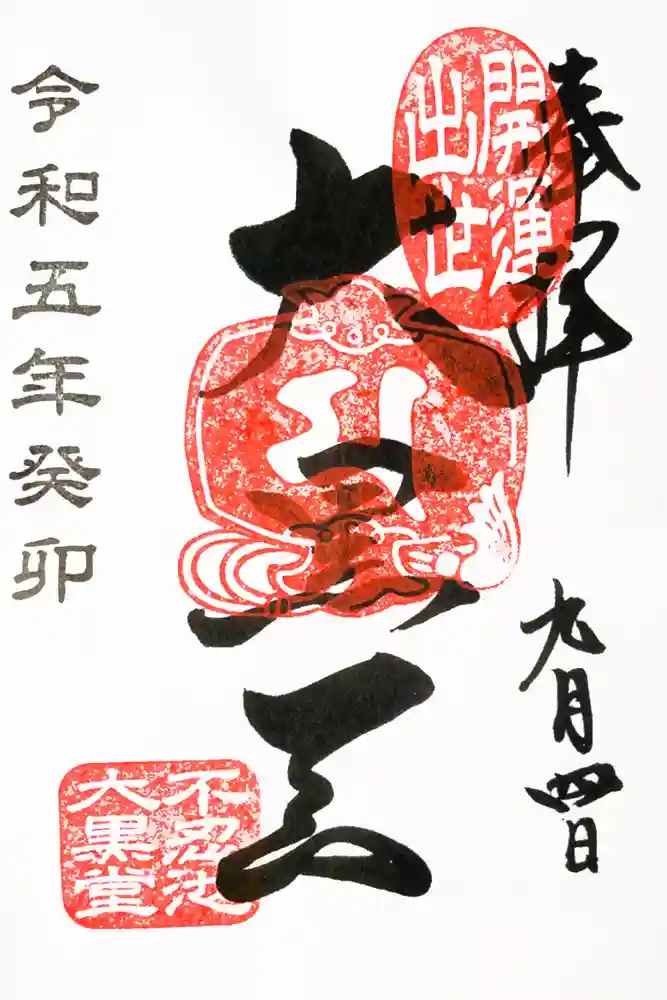 奉拝
九月四日
開運
出世
大黒天
不忍池
大黒堂
令和五年癸卯